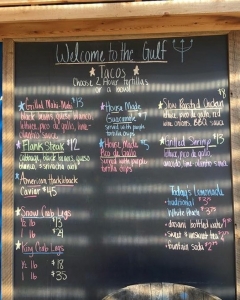 Welcome to the Gulf
Tacos
Choose 2 flour tortillas
or a bowl
Grilled Mahi-Mahi $13
black beans, queso blanco,
lettuce, pico de gallo,
Flank Steak $12
Cabbage, black beans, queso
blanco, & sriracha
American Hackleback
Caviar $45
Snow Crab Legs
½ lb $13
1 lb $24
King Crab Legs
½ lb $18
1 lb $35
House Made
Guacamole $7
served with purple
tortilla chips
House Made $5
Pico de Gallo
served with purple
tortilla chips
Slow Roasted Chicken
lettuce, pico de gallo, red
onions, BBQ sauce
Grilled Shrimp $13
lettuce, pico de gallo,
Today's Lemonade
traditional $3
bottled water
sweet & unsweet tea $2
fountain soda $2